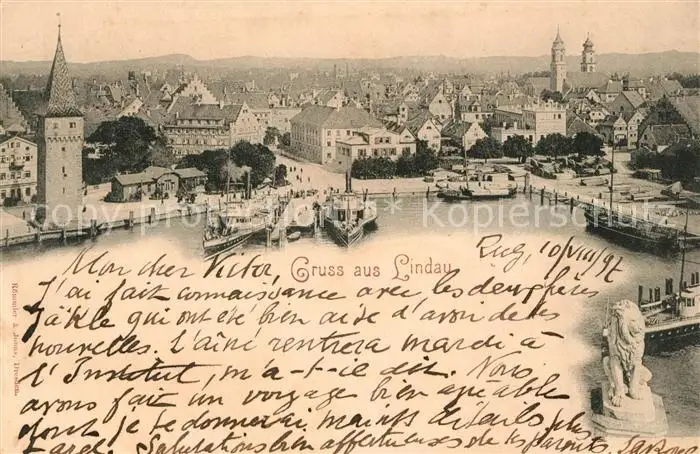 Gruss aus Lindau
10/VIII/97
Mon cher Victor,
J'ai fait connaissance avec les deux frères
qui ont été bien aise d'avoir de tes
nouvelles. L'aîné rentrera mardi à
l'Institut, m'a-t-il dit. Nous
avons fait un voyage bien agréable
dont je te donnerai maints détails plus
tard. Salutations bien affectueuses de tes parents,
Römmler & Jonas, Dresden
copyright-watermark